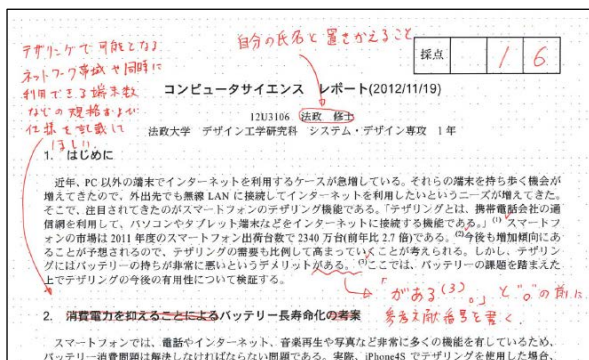 テザリングで可能となる
ネットワーク帯域や同時に
利用できる端末数
などの規格および
仕様を記載して
ほしい
自分の氏名と置きかえること
採点 1 6
コンピュータサイエンス レポート(2012/11/19)
12U3106 法政 修士
法政大学 デザイン工学研究科 システム・デザイン専攻 1年
1. はじめに
近年、PC 以外の端末でインターネットを利用するケースが急増している。それらの端末を持ち歩く機会が
増えてきたので、外出先でも無線 LAN に接続してインターネットを利用したいというニーズが増えてきた。
そこで、注目されてきたのがスマートフォンのテザリング機能である。「テザリングとは、携帯電話会社の通
信網を利用して、パソコンやタブレット端末などをインターネットに接続する機能である。」(1) スマートフ
ォンの市場は 2011 年度のスマートフォン出荷台数で 2340 万台(前年比 2.7 倍)である。(2)今後も増加傾向にあ
ることが予想されるので、テザリングの需要も比例して高まっていくことが考えられる。しかし、テザリン
グにはバッテリーの持ちが非常に悪いというデメリットがある。(3)ここでは、バッテリーの課題を踏まえた
上でテザリングの今後の有用性について検証する。
「がある(3)。」と"。"の前に
参考文献番号を書く.
2. 消費電力を抑えることによるバッテリー長寿命化の考案
スマートフォンでは、電話やインターネット、音楽再生や写真など非常に多くの機能を有しているため、
バッテリー消費問題は解決しなければならない問題である。実際、iPhone4S でテザリングを使用した場合、